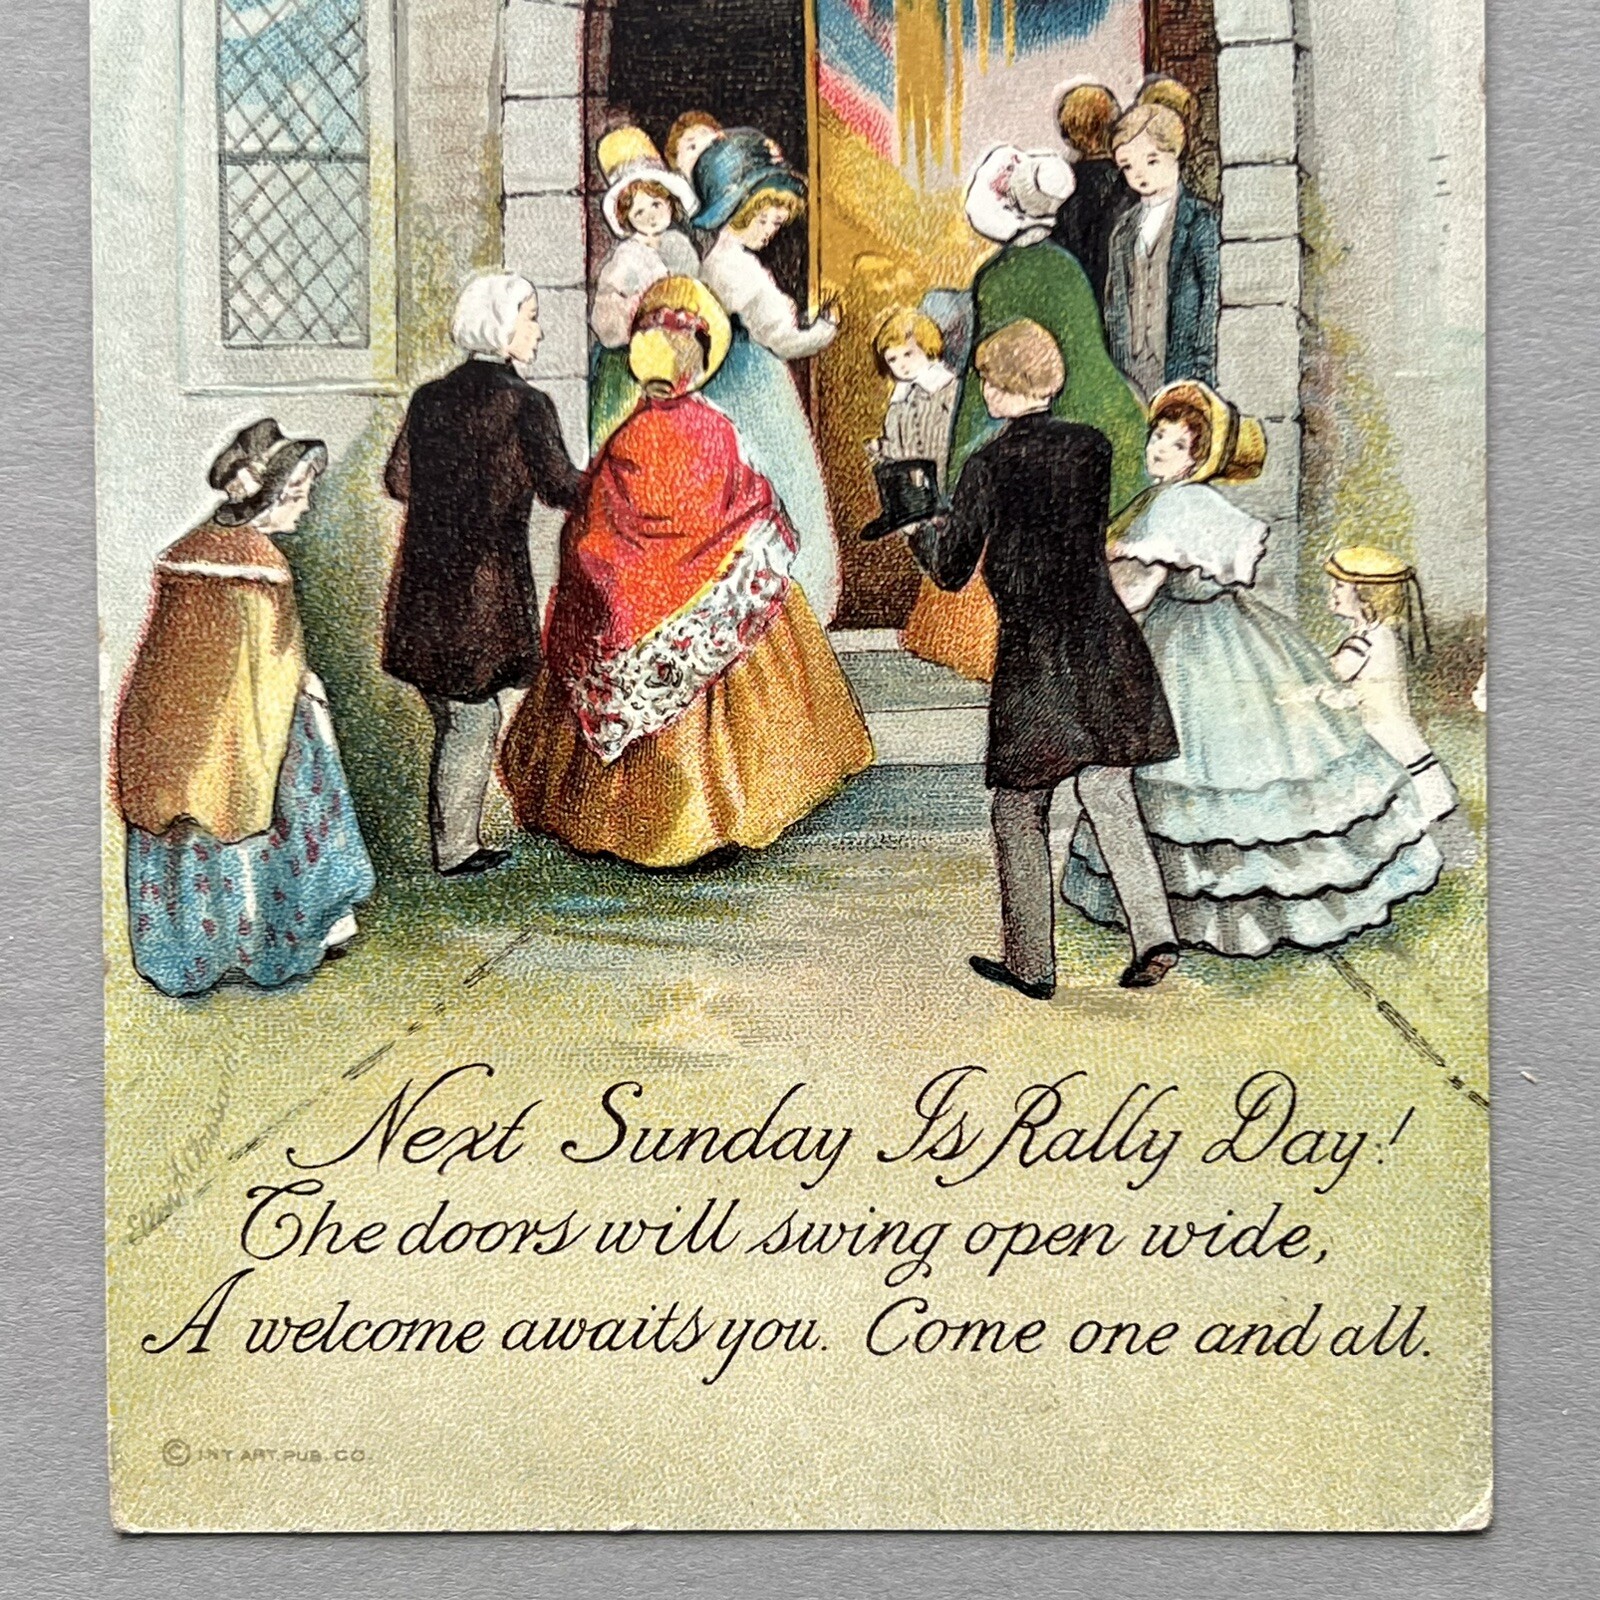 Next Sunday Is Rally Day!
The doors will swing open wide,
A welcome awaits you. Come one and all.
Ellen H. Clapsaddle
© INT ART PUB. CO.